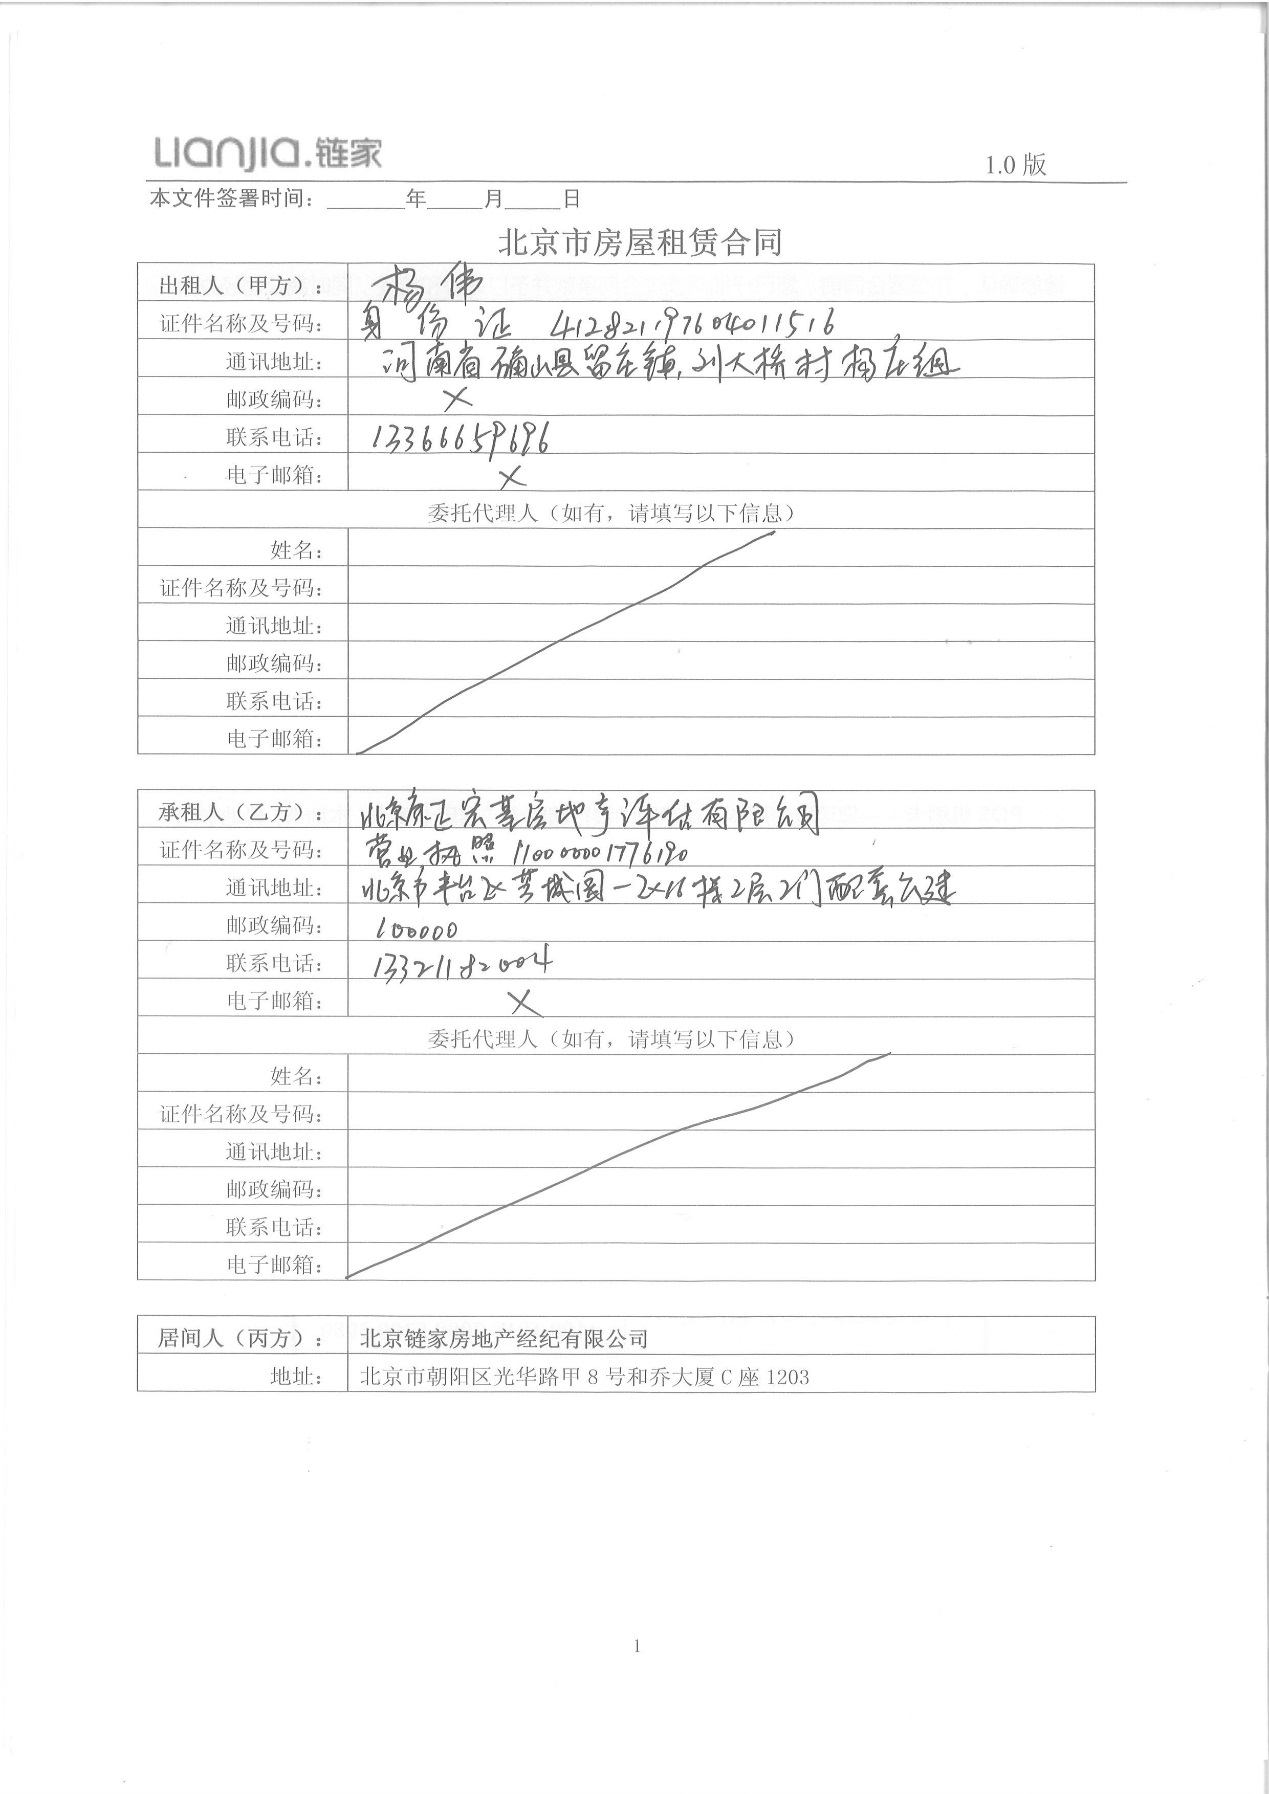 Lianjia.链家
1.0 版
本文件签署时间：_______年_____月_____日
北京市房屋租赁合同
出租人（甲方）： 杨伟
证件名称及号码： 身份证 412821197604011516
通讯地址： 河南省确山县留庄镇刘大桥村杨庄组
邮政编码： ×
联系电话： 13366659696
电子邮箱： ×
委托代理人（如有，请填写以下信息）
姓名：
证件名称及号码：
通讯地址：
邮政编码：
联系电话：
电子邮箱：
承租人（乙方）： 北京京正宏基房地产评估有限公司
证件名称及号码： 营业执照 1100000001776190
通讯地址： 北京市丰台区芳城园一区16楼2层2门配套公建
邮政编码： 100000
联系电话： 13321182004
电子邮箱： ×
委托代理人（如有，请填写以下信息）
姓名：
证件名称及号码：
通讯地址：
邮政编码：
联系电话：
电子邮箱：
居间人（丙方）： 北京链家房地产经纪有限公司
地址： 北京市朝阳区光华路甲 8 号和乔大厦 C 座 1203
1